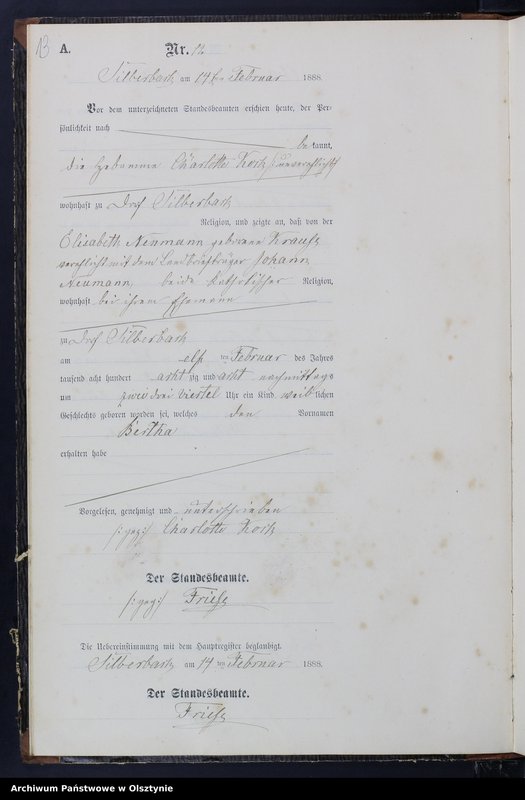 13
A.
Nr. 12
Silberbach am 14 ten Februar 1888.
Vor dem unterzeichneten Standesbeamten erschien heute, der Per-
sönlichkeit nach
be kannt,
die Hebamme Charlotte Kock, unverehlicht
wohnhaft zu Dorf Silberbach
Religion, und zeigte an, daß von der
Elisabeth Neumann geborene Krause
verehlicht mit dem Landbriefträger Johann
Neumann, beide katholischer Religion,
wohnhaft bei ihrem Ehemann
zu Dorf Silberbach
am elf ten Februar des Jahres
tausend acht hundert acht zig und acht nachmittags
um zwei drei viertel Uhr ein Kind weib lichen
Geschlechts geboren worden sei, welches den Vornamen
Bertha
erhalten habe
Vorgelesen, genehmigt und unterschrieben
/: gez :/ Charlotte Kock
Der Standesbeamte.
/: gez :/ Friese
Die Uebereinstimmung mit dem Hauptregister beglaubigt.
Silberbach am 14 ten Februar 1888.
Der Standesbeamte.
Friese
Archiwum Państwowe w Olsztynie